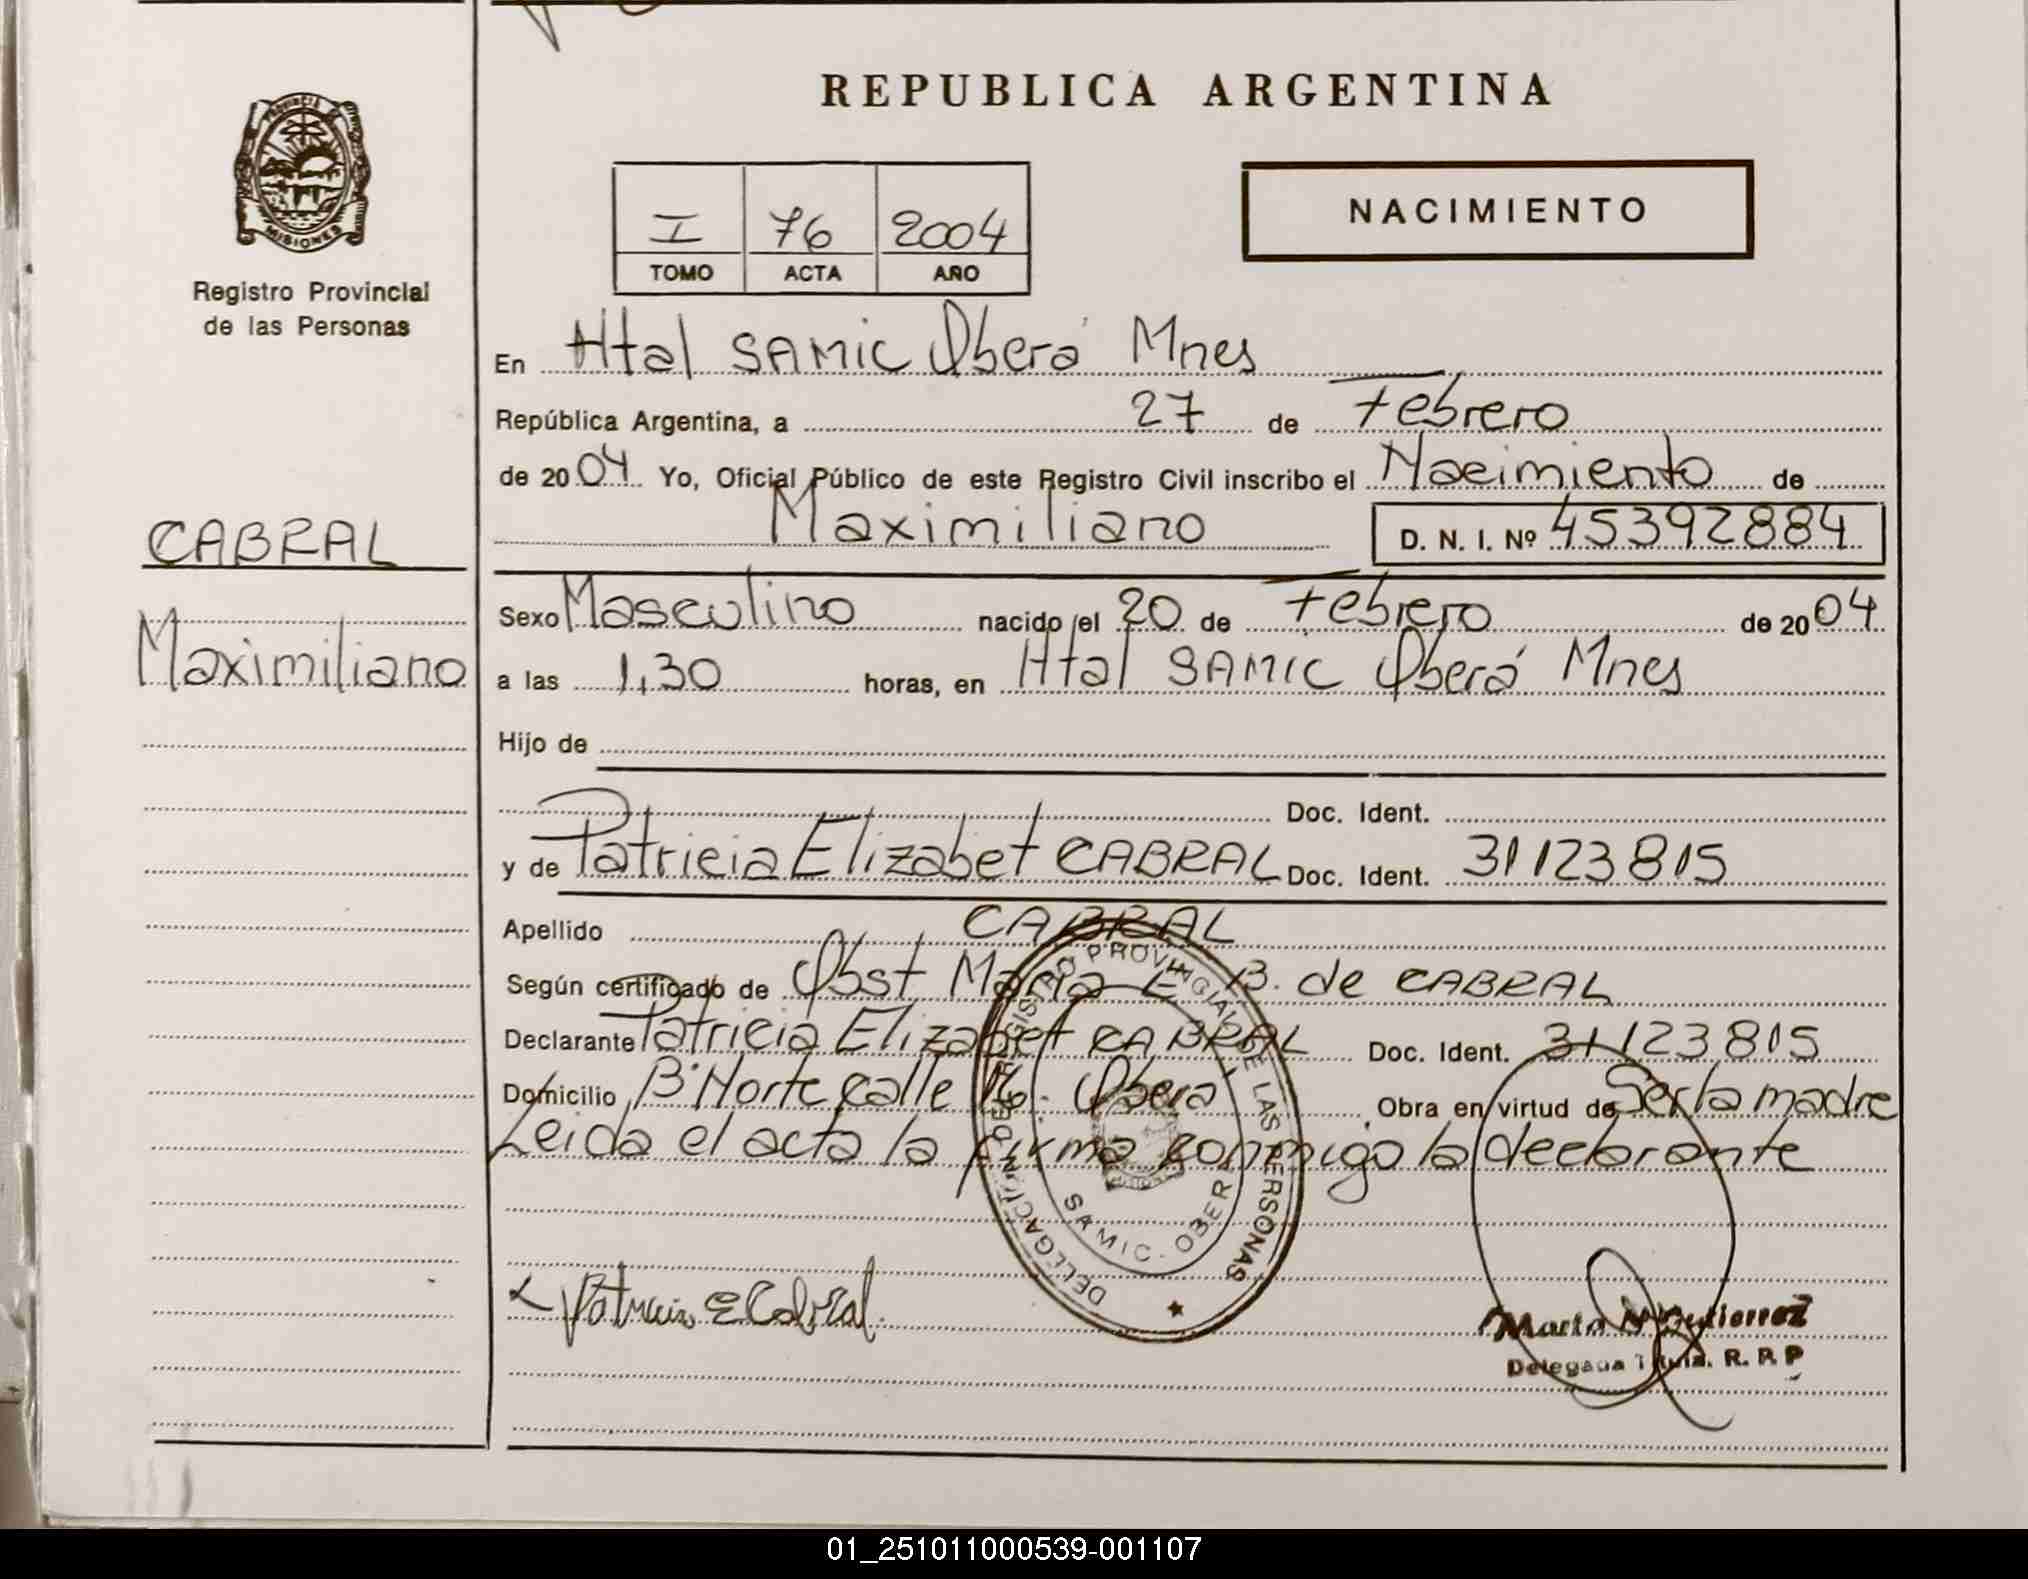 REPUBLICA ARGENTINA
PROVINCIA
MISIONES
Registro Provincial
de las Personas
I 76 2004
TOMO ACTA AÑO
NACIMIENTO
En Htal SAMIC Oberá Mnes
República Argentina, a 27 de Febrero
de 2004 Yo, Oficial Público de este Registro Civil inscribo el Nacimiento de
Maximiliano D. N. I. Nº 45392884
CABRAL
Maximiliano
Sexo Masculino nacido el 20 de Febrero de 2004
a las 1,30 horas, en Htal SAMIC Oberá Mnes
Hijo de
Doc. Ident.
y de Patricia Elizabet CABRAL Doc. Ident. 31123815
Apellido CABRAL
Según certificado de Obst Maria E B. de CABRAL
Declarante Patricia Elizabet CABRAL Doc. Ident. 31123815
Domicilio Bº Norte calle 16. Oberá Obra en virtud de Ser la madre
Leida el acta la firma conmigo la declarante
DELLEGACION DE REGISTRO PROVINCIAL DE LAS PERSONAS
SAMIC - OBERA
Patricia E Cabral
Marta N Gutierrez
Delegada R. P. P
01_251011000539-001107